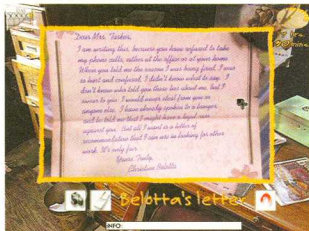 Dear Mrs. Parker,
I am writing this, because you have refused to take
my phone calls, either at the office or at your home.
When you told me the reason I was being fired, I was
so hurt and confused. I didn't know what to say. I
don't know who told you those lies about me, but I
swear to you I would never steal from you or
anyone else. I have already spoken to a lawyer
and he told me that I might have a legal case
against you. But all I want is a letter of
recommendation that I can use in looking for other
work. It's only fair.
Yours Truly,
Christine Belotta
Belotta's letter
INFO: